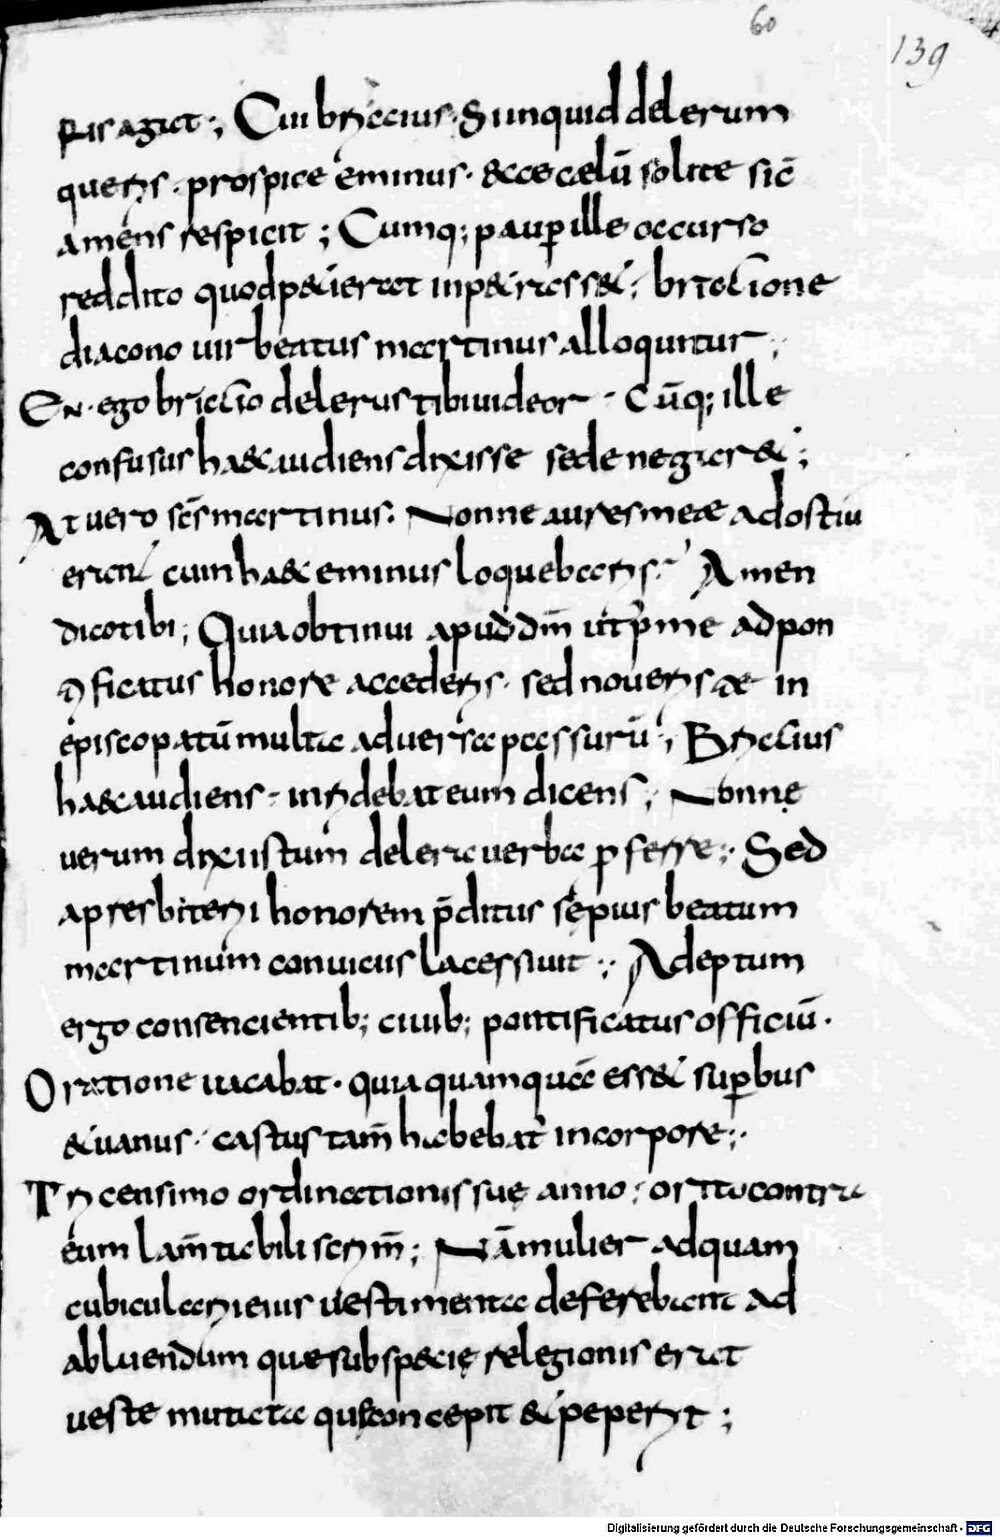 60
139
ris agit ; Cui briccius . Si inquid delerum
queris . prospice eminus . ecce cęlū solite sic̄
amens respicit ; Cumq; paup̱ ille occurso
reddito quod petierat inpetrasset ; brictione
diacono uir beatus martinus alloquitur ;
En . ego briccio delerus tibi uideor . Cūq; ille
confusus haec audiens dixisse se denegaret ;
At vero sc̄s martinus . Nonne aures meae ad ostiū
erant cum haec eminus loquebaris . Amen
dico tibi ; Quia obtinui apud dm̄ ut p̄ me ad pon
tificatus honore accederis . sed noueris te in
episcopatū multa aduersa passurū ; Briccius
haec audiens . inridebat eum dicens ; Nonne
uerum dixi istum delera uerba p̱ferre ; Sed
a presbiterii honorem p̄ditus sępius beatum
martinum conuiciis lacessiuit ; Adeptum
ergo consencientib; ciuib; pontificatus officiū .
Oratione uacabat . quia quamquā esset sup̱bus
et uanus . castus tam̄ habebat̄ in corpore ;
Tricensimo ordinationis suę anno ; orto contra
eum lam̄tabili crim̄ ; Nā mulier ad quam
cubicularii eius uestimenta deferebant ad
abluendum quae sub specię relegionis erat
ueste mutata concepit et peperit ;
Digitalisierung gefördert durch die Deutsche Forschungsgemeinschaft - DFG